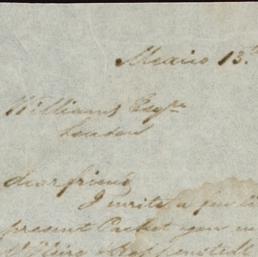 Mexico 13th
Williams Esqre
London
dear friend
I write a few li
present Packet upon